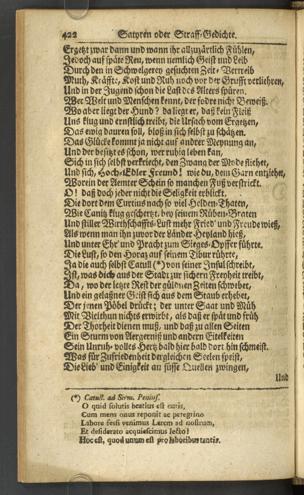 422 Satyren oder Straff-Gedichte.
Ergetzt zwar dann und wann ihr allzuzärtlich Fühlen,
Jedoch auf späte Reu, wenn nemlich Geist und Leib
Durch den in Schwelgerey gesuchten Zeit-Vertreib
Muth, Kräffte, Kost und Ruh noch vor der Grufft verliehren,
Und in der Jugend schon die Last des Alters spüren.
Wer Welt und Menschen kennt, der fodre nicht Beweiß.
Wo aber liegt der Hund? da liegt er, daß kein Fleiß
Uns klug und ernstlich treibt, die Ursach vom Ergetzen,
Das ewig dauren soll, bloß in sich selbst zu schätzen.
Das Glücke kommt ja nicht auf andrer Meynung an,
Und der besitzt es schon, wer ruhig leben kan,
Sich in sich selbst verkriecht, den Zwang der Mode fliehet,
Und sich, Hoch-Edler Freund! wie du, dem Garn entziehet,
Worein der Aemter Schein so manchen Fuß verstrickt.
O! daß doch jeder nicht die Seligkeit erblickt,
Die dort dem Curtius nach so viel Helden-Thaten,
Wie Canitz klug geschertzt, bey seinem Rüben-Braten
Und stiller Wirthschaffts-Lust mehr Fried' und Freude wieß,
Als wenn man ihn zuvor der Länder Heyland hieß,
Und unter Ehr' und Pracht zum Sieges-Opffer führte.
Die Lust, so den Horaz auf seinem Tibur rührte,
Ja die auch selbst Catull (*) von seiner Insul schreibt,
Ist, was dich aus der Stadt zur sichern Freyheit treibt,
Da, wo der letzte Rest der güldnen Zeiten schwebet,
Und ein gelaßner Geist sich aus dem Staub erhebet,
Der jenen Pöbel drückt; der unter Saat und Müh
Mit Vielthun nichts erwirbt, als daß er spät und früh
Der Thorheit dienen muß, und daß zu allen Seiten
Ein Sturm von Aergerniß und andern Eitelkeiten
Sein Unruh-volles Hertz bald hier bald dort hin schmeist.
Was für Zufriedenheit dergleichen Seelen speist,
Die Lieb' und Einigkeit an süsse Quellen zwingen,
Und
(*) Catull. ad Sirm. Penins.
O quid solutis beatius est curis,
Cum mens onus reponit ac peregrino
Labore fessi venimus Larem ad nostrum,
Et desiderato acquiescimus lecto!
Hoc est, quod unum est pro laboribus tantis.